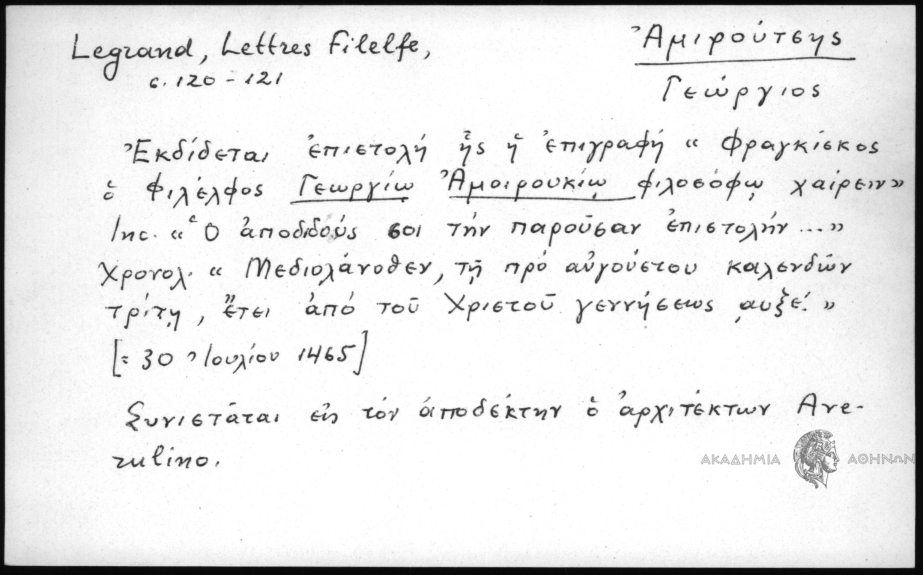 Legrand, Lettres Filelfe,
σ. 120-121
Ἀμιρούτσης
Γεώργιος
Ἐκδίδεται ἐπιστολή ἧς ἡ ἐπιγραφή « Φραγκίσκος
ὁ Φιλέλφος Γεωργίῳ Ἀμοιρουκίῳ φιλοσόφῳ χαίρειν»
Inc. « Ὁ ἀποδιδούς σοι τήν παροῦσαν ἐπιστολήν...»
Χρονολ. « Μεδιολάνοθεν, τῇ πρό αὐγούστου καλενδῶν
τρίτῃ, ἔτει ἀπό τοῦ Χριστοῦ γεννήσεως ͵αυξέ. »
[= 30 Ἰουλίου 1465]
Συνιστᾶται εἰς τόν ἀποδέκτην ὁ ἀρχιτέκτων Ave-
rulino.
ΑΚΑΔΗΜΙΑ ΑΘΗΝΩΝ